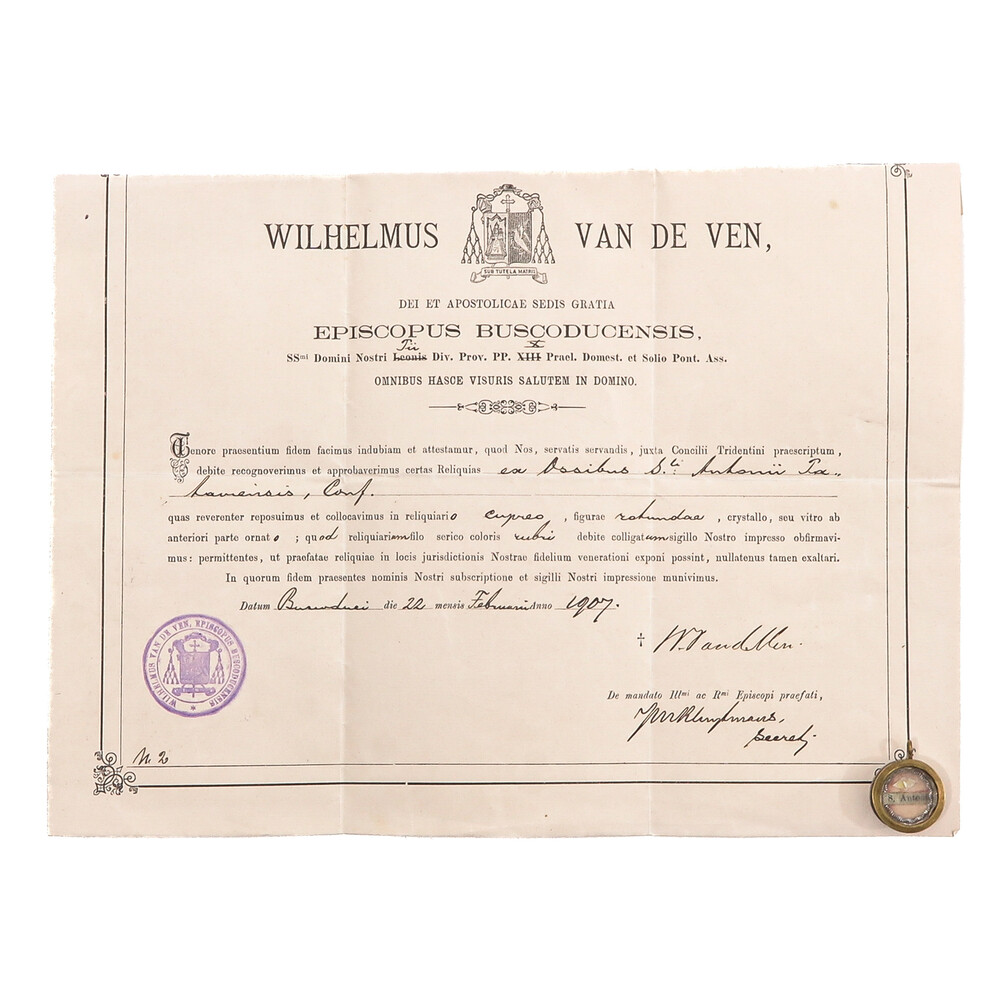 WILHELMUS VAN DE VEN,
SUB TUTELA MATRIS
DEI ET APOSTOLICAE SEDIS GRATIA
EPISCOPUS BUSCODUCENSIS,
Pii X
SSmi Domini Nostri Leonis Div. Prov. PP. XIII Prael. Domest. et Solio Pont. Ass.
OMNIBUS HASCE VISURIS SALUTEM IN DOMINO.
Tenore praesentium fidem facimus indubiam et attestamur, quod Nos, servatis servandis, juxta Concilii Tridentini praescriptum,
debite recognoverimus et approbaverimus certas Reliquias ex Ossibus S.ti Antonii Pa-
taviensis, Conf.
quas reverenter reposuimus et collocavimus in reliquiario cupreo, figurae rotundae, crystallo, seu vitro ab
anteriori parte ornato; quod reliquiarium filo serico coloris rubri debite colligatum sigillo Nostro impresso obfirmavi-
mus: permittentes, ut praefatae reliquiae in locis jurisdictionis Nostrae fidelium venerationi exponi possint, nullatenus tamen exaltari.
In quorum fidem praesentes nominis Nostri subscriptione et sigilli Nostri impressione munivimus.
Datum Buscoduci die 22 mensis Februarii Anno 1907.
† W. Van de Ven.
WILHELMUS VAN DE VEN, EPISCOPUS BUSCODUCENSIS
De mandato Illmi ac Rmi Episcopi praefati,
Secret.
N. 2
S. Anto